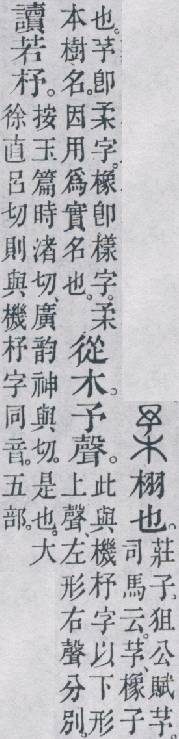 柔 栩也。莊子。狙公賦芧。司馬云。芧、橡子
也。芧卽柔字。橡卽樣字。柔本樹名。因用爲實名也。從木。予聲。此與機杼字以下形上聲、左形右聲分別。
讀若杼。按玉篇時渚切、廣韵神與切。是也。大徐直呂切則與機杼字同音。五部。